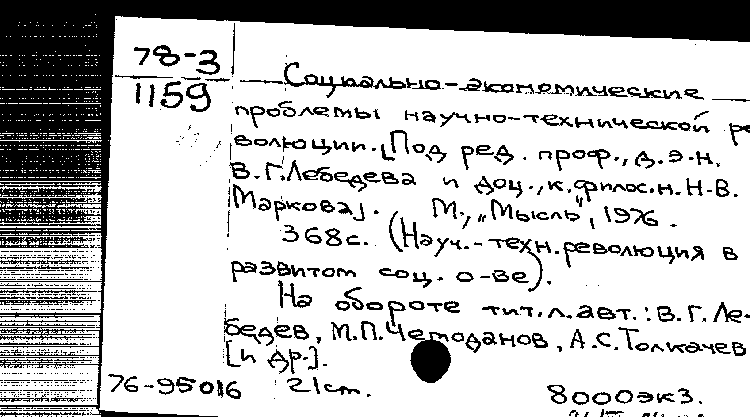 78-3
1159
Социально-экономические
проблемы научно-технической ре
волюции. [Под ред. проф., д.э.н.
В.Г.Лебедева и доц., к.филос.н. Н.В.
Маркова]. М., "Мысль", 1976.
368с. (Науч.-техн.революция в
развитом соц. о-ве).
На обороте тит.л.авт.: В.Г.Ле-
бедев, М.П.Чемоданов, А.С.Толкачев
[и др.].
76-95016 21см.
8000экз.